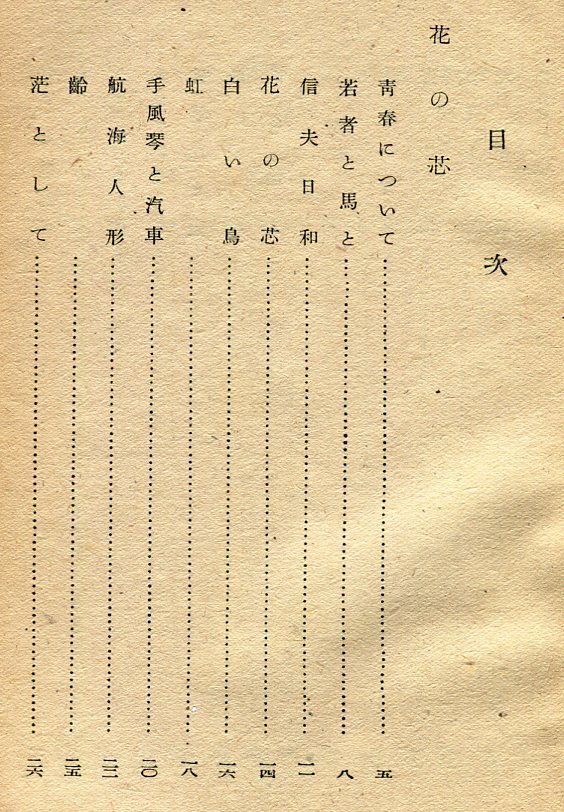 目次
花の芯
靑春について……五
若者と馬と……八
信夫日和……一一
花の芯……一四
白い鳥……一六
虹……一八
手風琴と汽車……二〇
航海人形……二三
齡……二五
茫として……二六